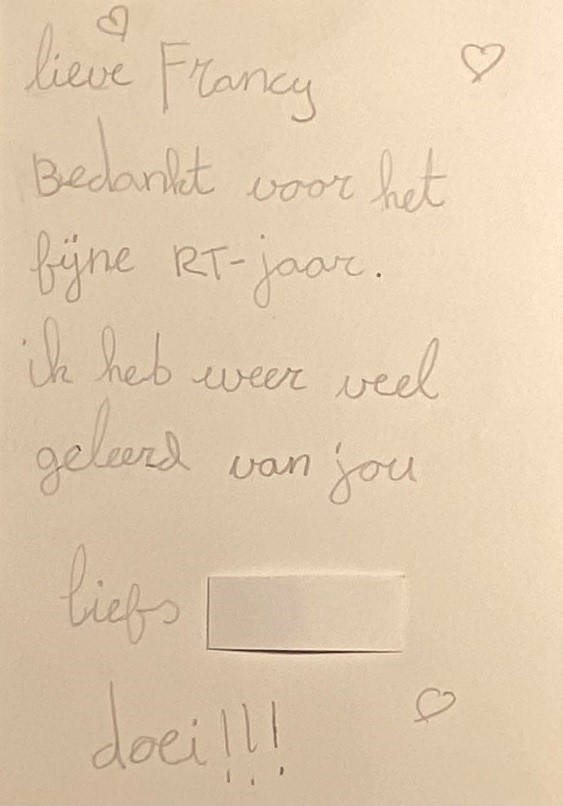 lieve Francy
Bedankt voor het
fijne RT-jaar.
ik heb weer veel
geleerd van jou
liefs
doei!!!